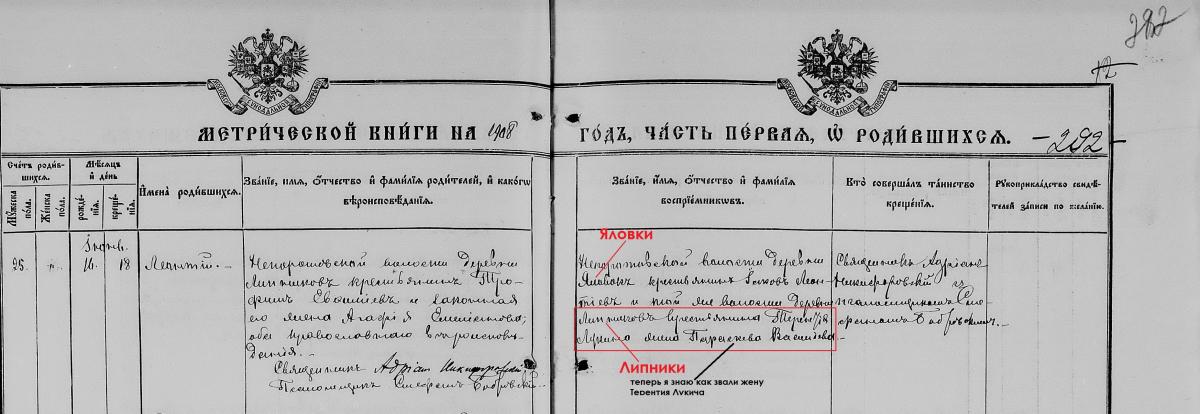 292
12
МЕТРИ́ЧЕСКОЙ КНИ́ГИ НА 1908
ГО́ДЪ, ЧА́СТЬ ПЕ́РВАЯ, Ѿ РОДИ́ВШИХСЯ. -292-
Сче́тъ роди́вшихся.
Му́жеска пола.
Же́нска пола.
Мѣ́сяцъ и́ де́нь
рожде́нія.
креще́нія.
И́мена̀ роди́вшихся.
Зва́ніе, и́мя, о́тчество и́ фами́лія роди́телей, и́ како́гѡ вѣроисповѣ́данія.
Зва́ніе, и́мя, о́тчество и́ фами́лія воспріе́мниковъ.
Кто̀ соверша́лъ та́инство креще́нія.
Рукоприкла́дство свидѣ́телей за́писи по жела́нію.
25.
16.
18
Леонтій.-
Непоротовской волости деревни
Липниковъ крестьянинъ Тро-
фимъ Евстиѣевъ и законная
его жена Агафія
оба православнаго вѣроисповѣ-
данія.-
Священникъ Адріанъ Никифоровскій
Псаломщикъ Стефанъ Бобровскій.
ЯЛОВКИ
Непоротовской волости деревни
Яловокъ крестьянинъ Іаковъ Леон-
тіевъ и той же волости деревни
Липниковъ крестьянина Терентія
Лукина жена Параскева Васильева.-
ЛИПНИКИ
теперь я знаю как звали жену
Терентия Лукича
Священникъ Адріанъ
Никифоровскій съ
псаломщикомъ Сте-
фаномъ Бобровскимъ.-